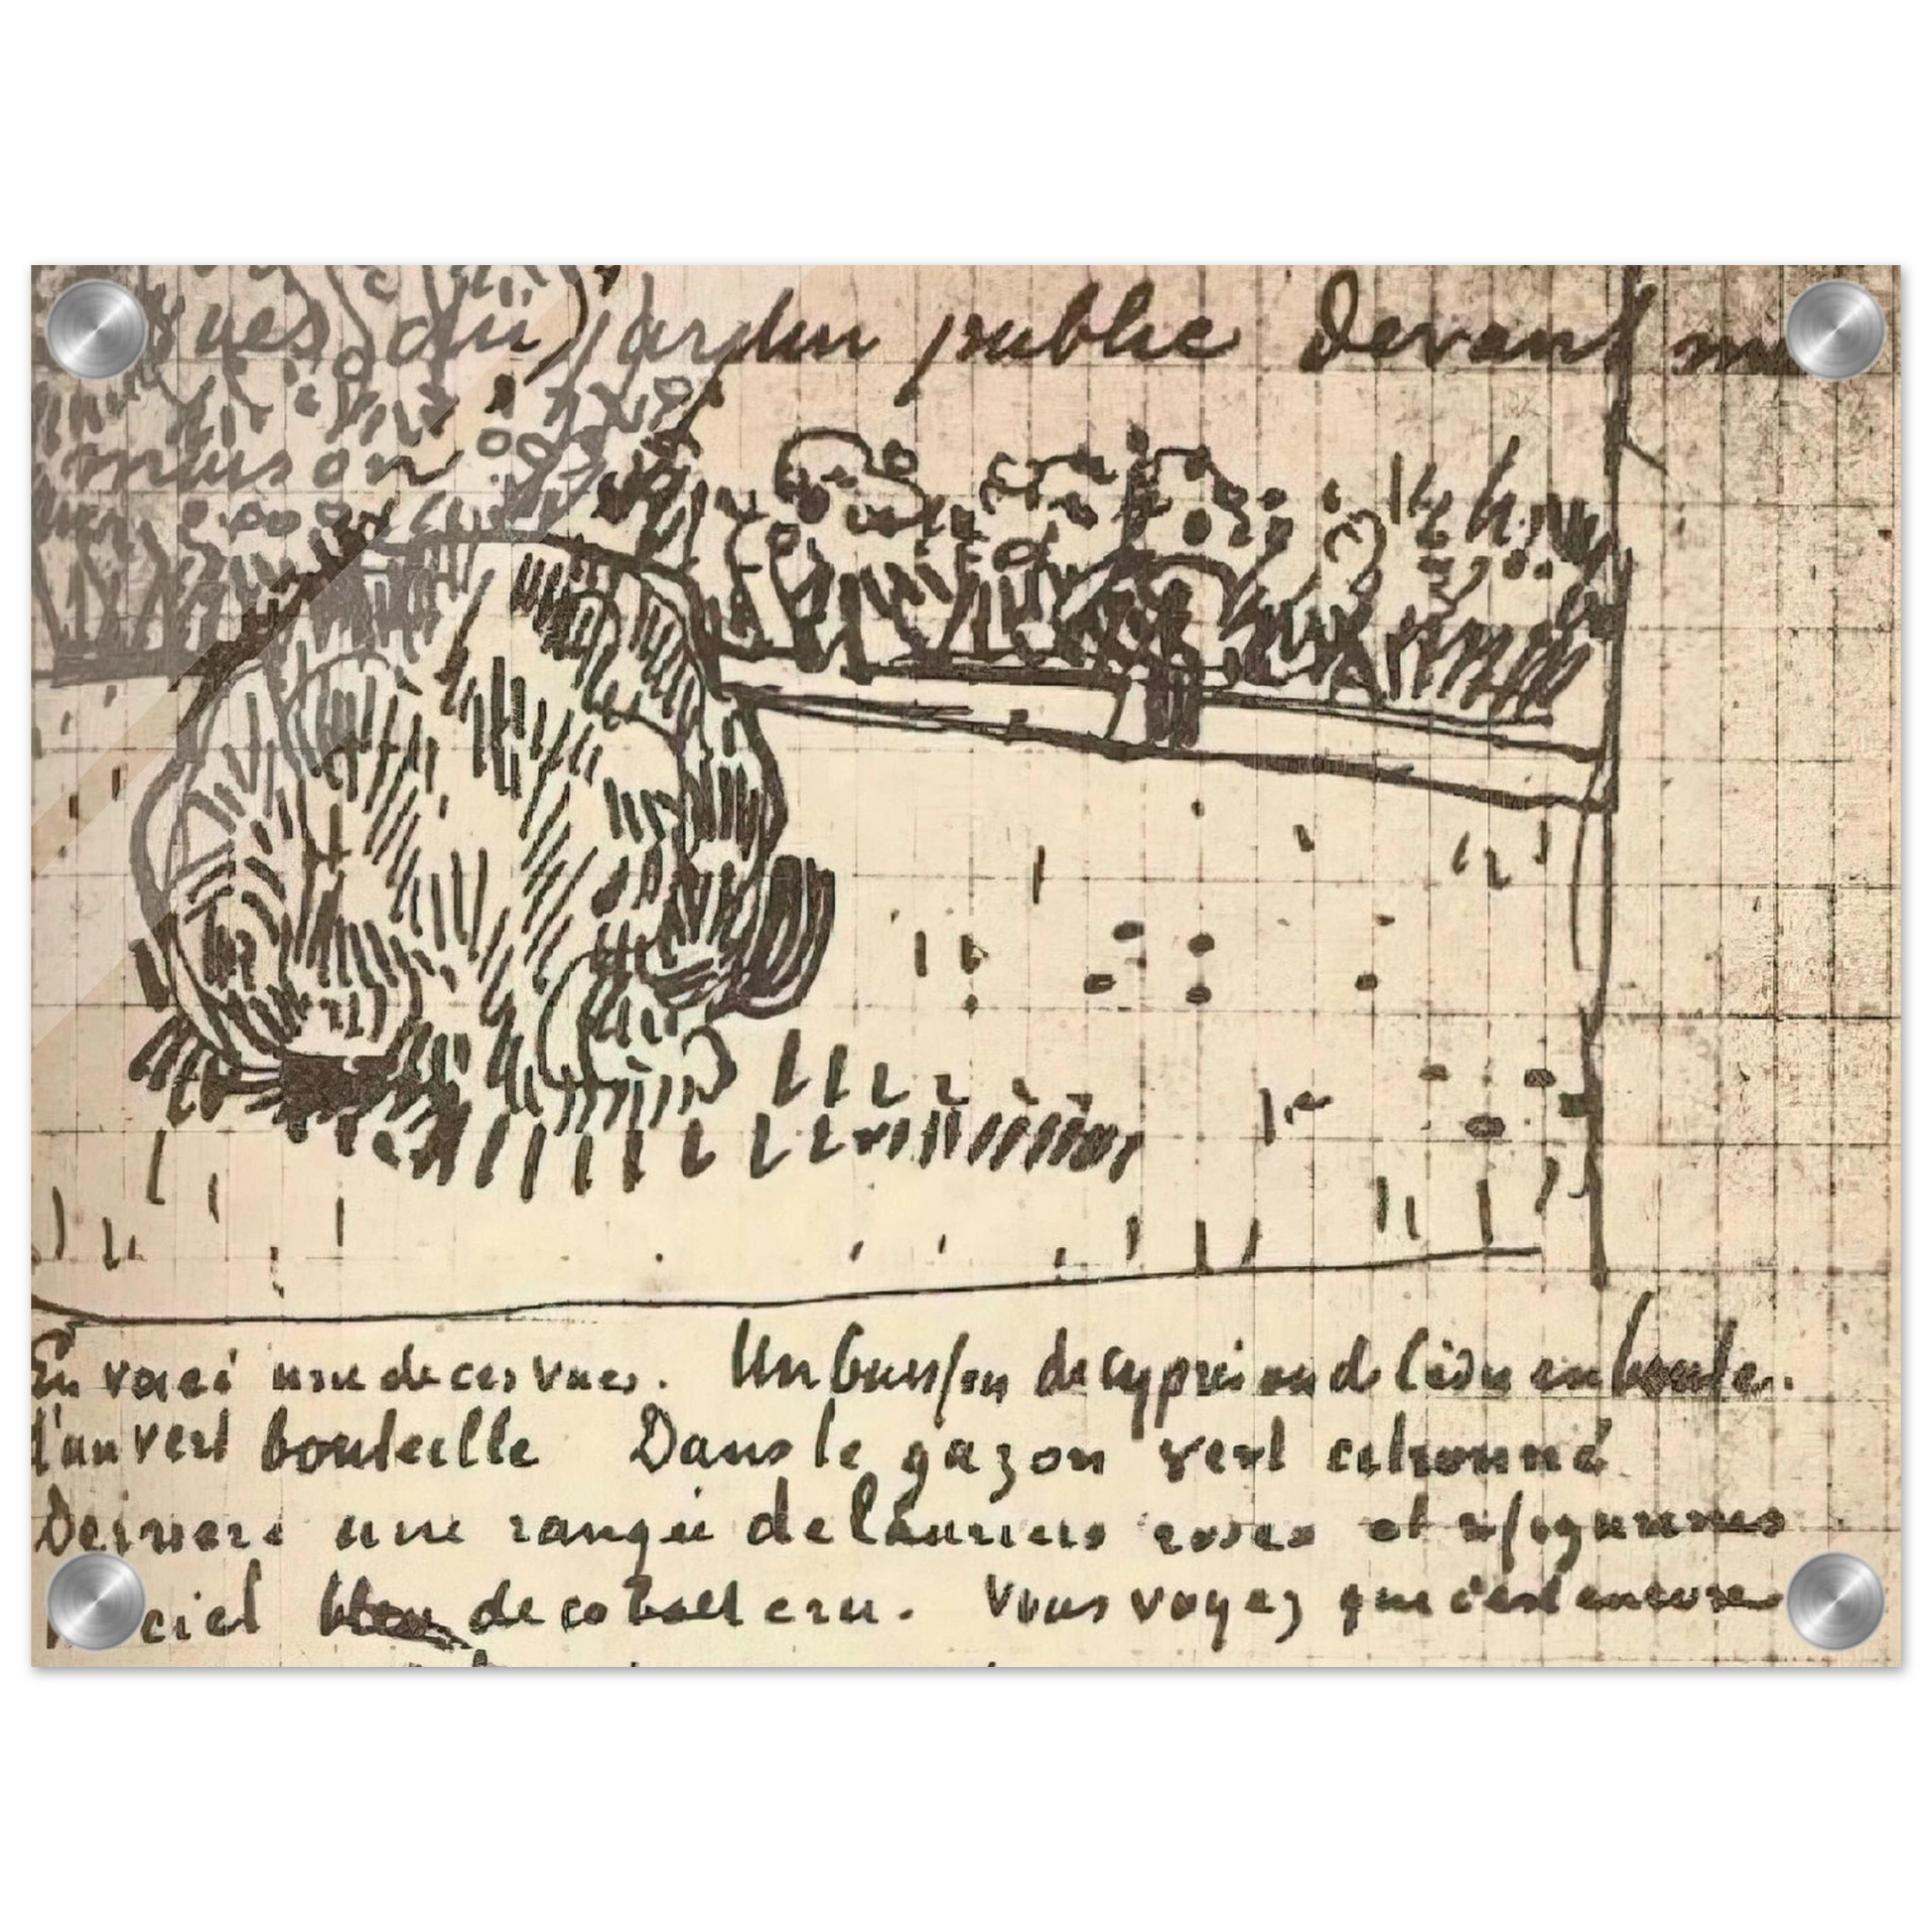 vues du jardin public devant m
maison
En voici une de ces vues. Un buisson de cyprès rond en boule.
d'un vert bouteille Dans le gazon vert citronné
Derriere une rangée de lauriers roses et
ciel bleu de cobalt cru. Vous voyez que c'est encore